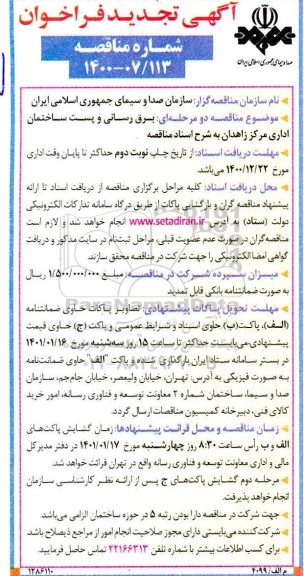 آگهی تجدید فراخوان
شماره مناقصه
۱۴۰۰-۰۷/۱۱۳
صدا و سیمای جمهوری اسلامی ایران
نام سازمان مناقصه‌گزار: سازمان صدا و سیمای جمهوری اسلامی ایران
موضوع مناقصه دو مرحله‌ای: برق رسانی و پست ساختمان
اداری مرکز زاهدان به شرح اسناد مناقصه
مهلت دریافت اسناد: از تاریخ چاپ نوبت دوم حداکثر تا پایان وقت اداری
مورخ ۱۴۰۰/۱۲/۲۲ می‌باشد.
محل دریافت اسناد: کلیه مراحل برگزاری مناقصه از دریافت اسناد تا ارائه
پیشنهاد مناقصه گران و بازگشایی پاکات از طریق درگاه سامانه تدارکات الکترونیکی
دولت (ستاد) به آدرس www.setadiran.ir انجام خواهد شد و لازم است
مناقصه‌گران در صورت عدم عضویت قبلی، مراحل ثبت‌نام در سایت مذکور و دریافت
گواهی امضا الکترونیکی را جهت شرکت در مناقصه محقق سازند.
میزان سپرده شرکت در مناقصه: مبلغ ۱/۵۰۰/۰۰۰/۰۰۰ ریال
به صورت ضمانتنامه بانکی قابل تمدید
مهلت تحویل پاکات پیشنهادی: تصاویر پاکات حاوی ضمانتنامه
(الف)، پاکت(ب) حاوی اسناد و شرایط عمومی و پاکت (ج) حاوی قیمت
پیشنهادی می‌بایست حداکثر تا ساعت ۱۵ روز سه‌شنبه مورخ ۱۴۰۱/۰۱/۱۶
در بستر سامانه ستاد ایران بارگذاری شده و پاکت "الف" حاوی ضمانت‌نامه
به صورت فیزیکی به آدرس: تهران، خیابان ولیعصر، خیابان جام‌جم، سازمان
صدا و سیما، ساختمان شماره ۲ معاونت توسعه و فناوری رسانه، امور خرید
کالای فنی، دبیرخانه کمیسیون مناقصات ارسال گردد.
زمان مناقصه و محل قرائت پیشنهادها: زمان گشایش پاکت‌های
الف و ب رأس ساعت ۸:۳۰ روز چهارشنبه مورخ ۱۴۰۱/۰۱/۱۷ در دفتر مدیر کل
مالی و اداری معاونت توسعه و فناوری رسانه واقع در تهران قرائت خواهد شد.
مرحله دوم گشایش پاکت‌های ج پس از ارائه نظر کارشناسی سازمان
انجام خواهد پذیرفت.
جهت شرکت در مناقصه دارا بودن رتبه ۵ در حوزه ساختمان الزامی می‌باشد.
شرکت کننده می‌بایستی دارای مجوز صلاحیت انجام امور از مراجع ذیصلاح باشد.
برای کسب اطلاعات بیشتر با شماره تلفن ۲۲۱۶۶۳۱۳ تماس حاصل فرمایید.
م الف/ ۴۰۹۹
۱۲۸۶۱۱۰